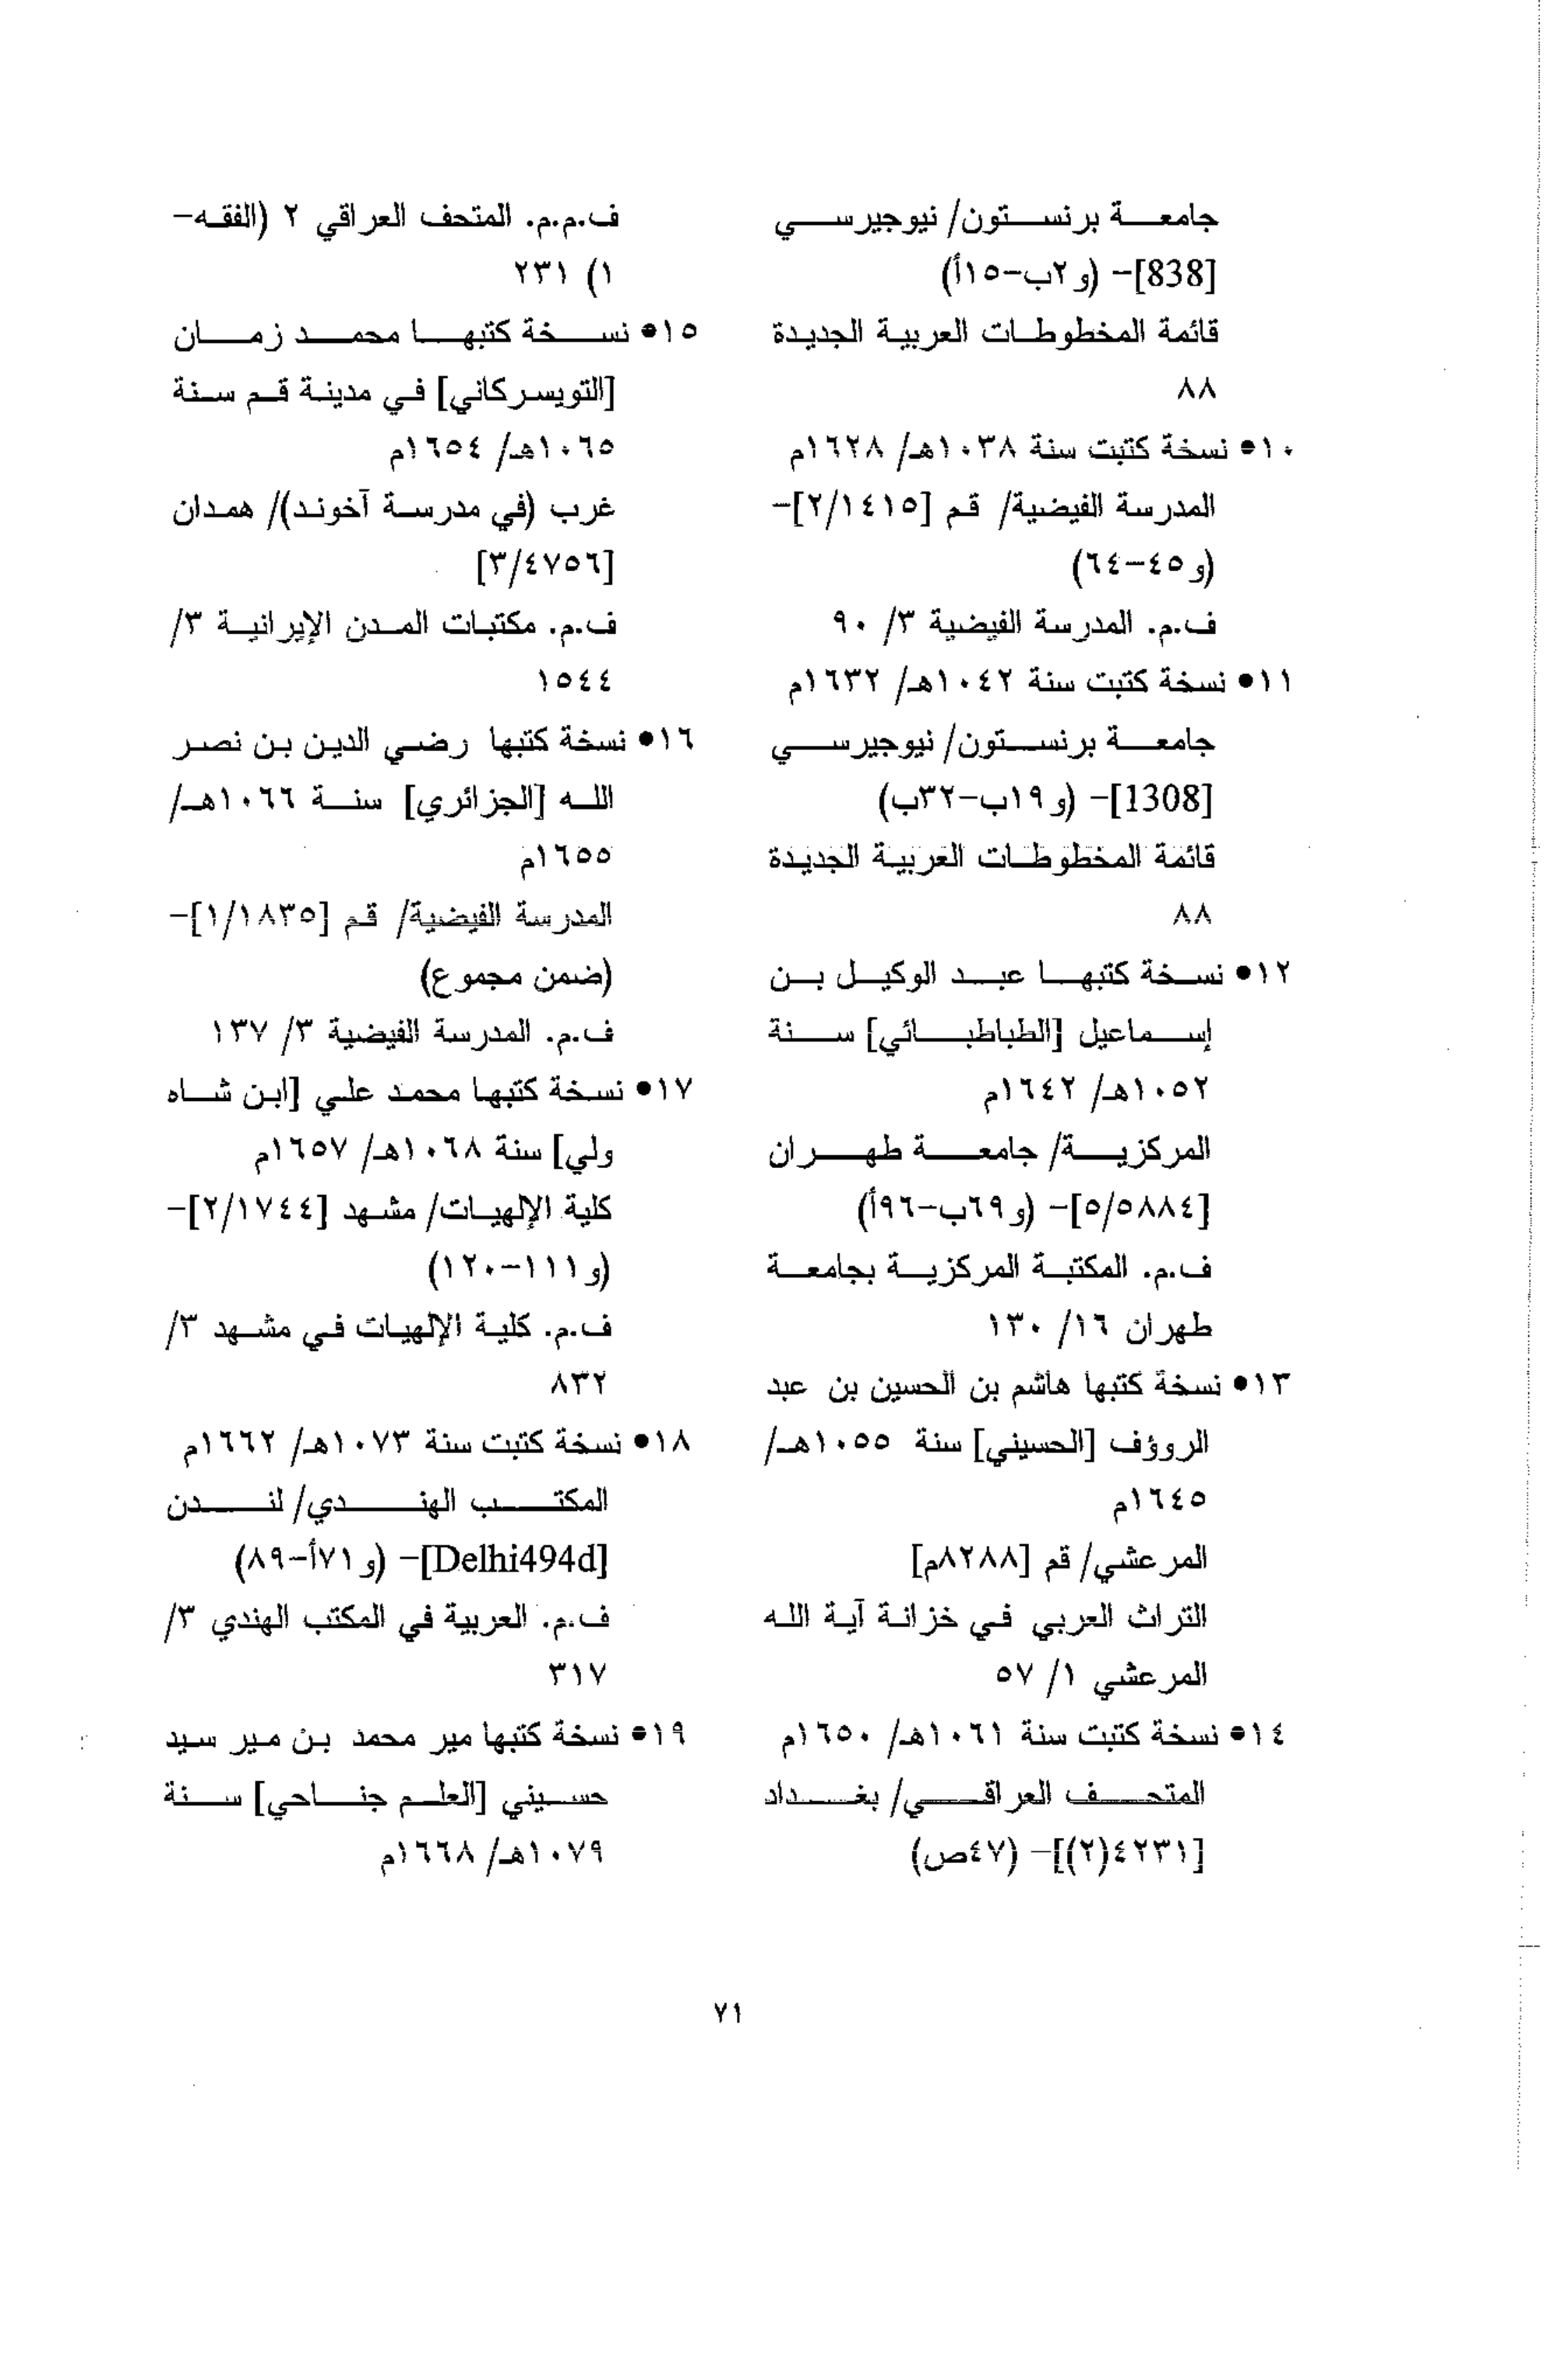 جامعة برنستون/ نيوجيرسي
[838]- (و٢ب-١٥أ)
قائمة المخطوطات العربية الجديدة
٨٨
١٠• نسخة كتبت سنة ١٠٣٨هـ/ ١٦٢٨م
المدرسة الفيضية/ قم [٢/١٤١٥]-
(و٤٥-٦٤)
ف.م. المدرسة الفيضية ٣/ ٩٠
١١• نسخة كتبت سنة ١٠٤٢هـ/ ١٦٣٢م
جامعة برنستون/ نيوجيرسي
[1308]- (و١٩ب-٣٢ب)
قائمة المخطوطات العربية الجديدة
٨٨
١٢• نسخة كتبها عبد الوكيل بن
إسماعيل [الطباطبائي] سنة
١٠٥٢هـ/ ١٦٤٢م
المركزية/ جامعة طهران
[٥/٥٨٨٤]- (و٦٩ب-٩٦أ)
ف.م. المكتبة المركزية بجامعة
طهران ١٦/ ١٣٠
١٣• نسخة كتبها هاشم بن الحسين بن عبد
الروؤف [الحسيني] سنة ١٠٥٥هـ/
١٦٤٥م
المرعشي/ قم [٨٢٨٨م]
التراث العربي في خزانة آية الله
المرعشي ١/ ٥٧
١٤• نسخة كتبت سنة ١٠٦١هـ/ ١٦٥٠م
المتحف العراقي/ بغداد
[٤٢٣١(٢)]- (٤٧ص)
ف.م.م. المتحف العراقي ٢ (الفقه-
١) ٢٣١
١٥• نسخة كتبها محمد زمان
[التويسركاني] في مدينة قم سنة
١٠٦٥هـ/ ١٦٥٤م
غرب (في مدرسة آخوند)/ همدان
[٣/٤٧٥٦]
ف.م. مكتبات المدن الإيرانية ٣/
١٥٤٤
١٦• نسخة كتبها رضي الدين بن نصر
الله [الجزائري] سنة ١٠٦٦هـ/
١٦٥٥م
المدرسة الفيضية/ قم [١/١٨٣٥]-
(ضمن مجموع)
ف.م. المدرسة الفيضية ٣/ ١٣٧
١٧• نسخة كتبها محمد علي [ابن شاه
ولي] سنة ١٠٦٨هـ/ ١٦٥٧م
كلية الإلهيات/ مشهد [٢/١٧٤٤]-
(و١١١-١٢٠)
ف.م. كلية الإلهيات في مشهد ٣/
٨٣٢
١٨• نسخة كتبت سنة ١٠٧٣هـ/ ١٦٦٢م
المكتب الهندي/ لندن
[Delhi494d]- (و٧١أ-٨٩)
ف.م. العربية في المكتب الهندي ٣/
٣١٧
١٩• نسخة كتبها مير محمد بن مير سيد
حسيني [العلم جناحي] سنة
١٠٧٩هـ/ ١٦٦٨م
٧١